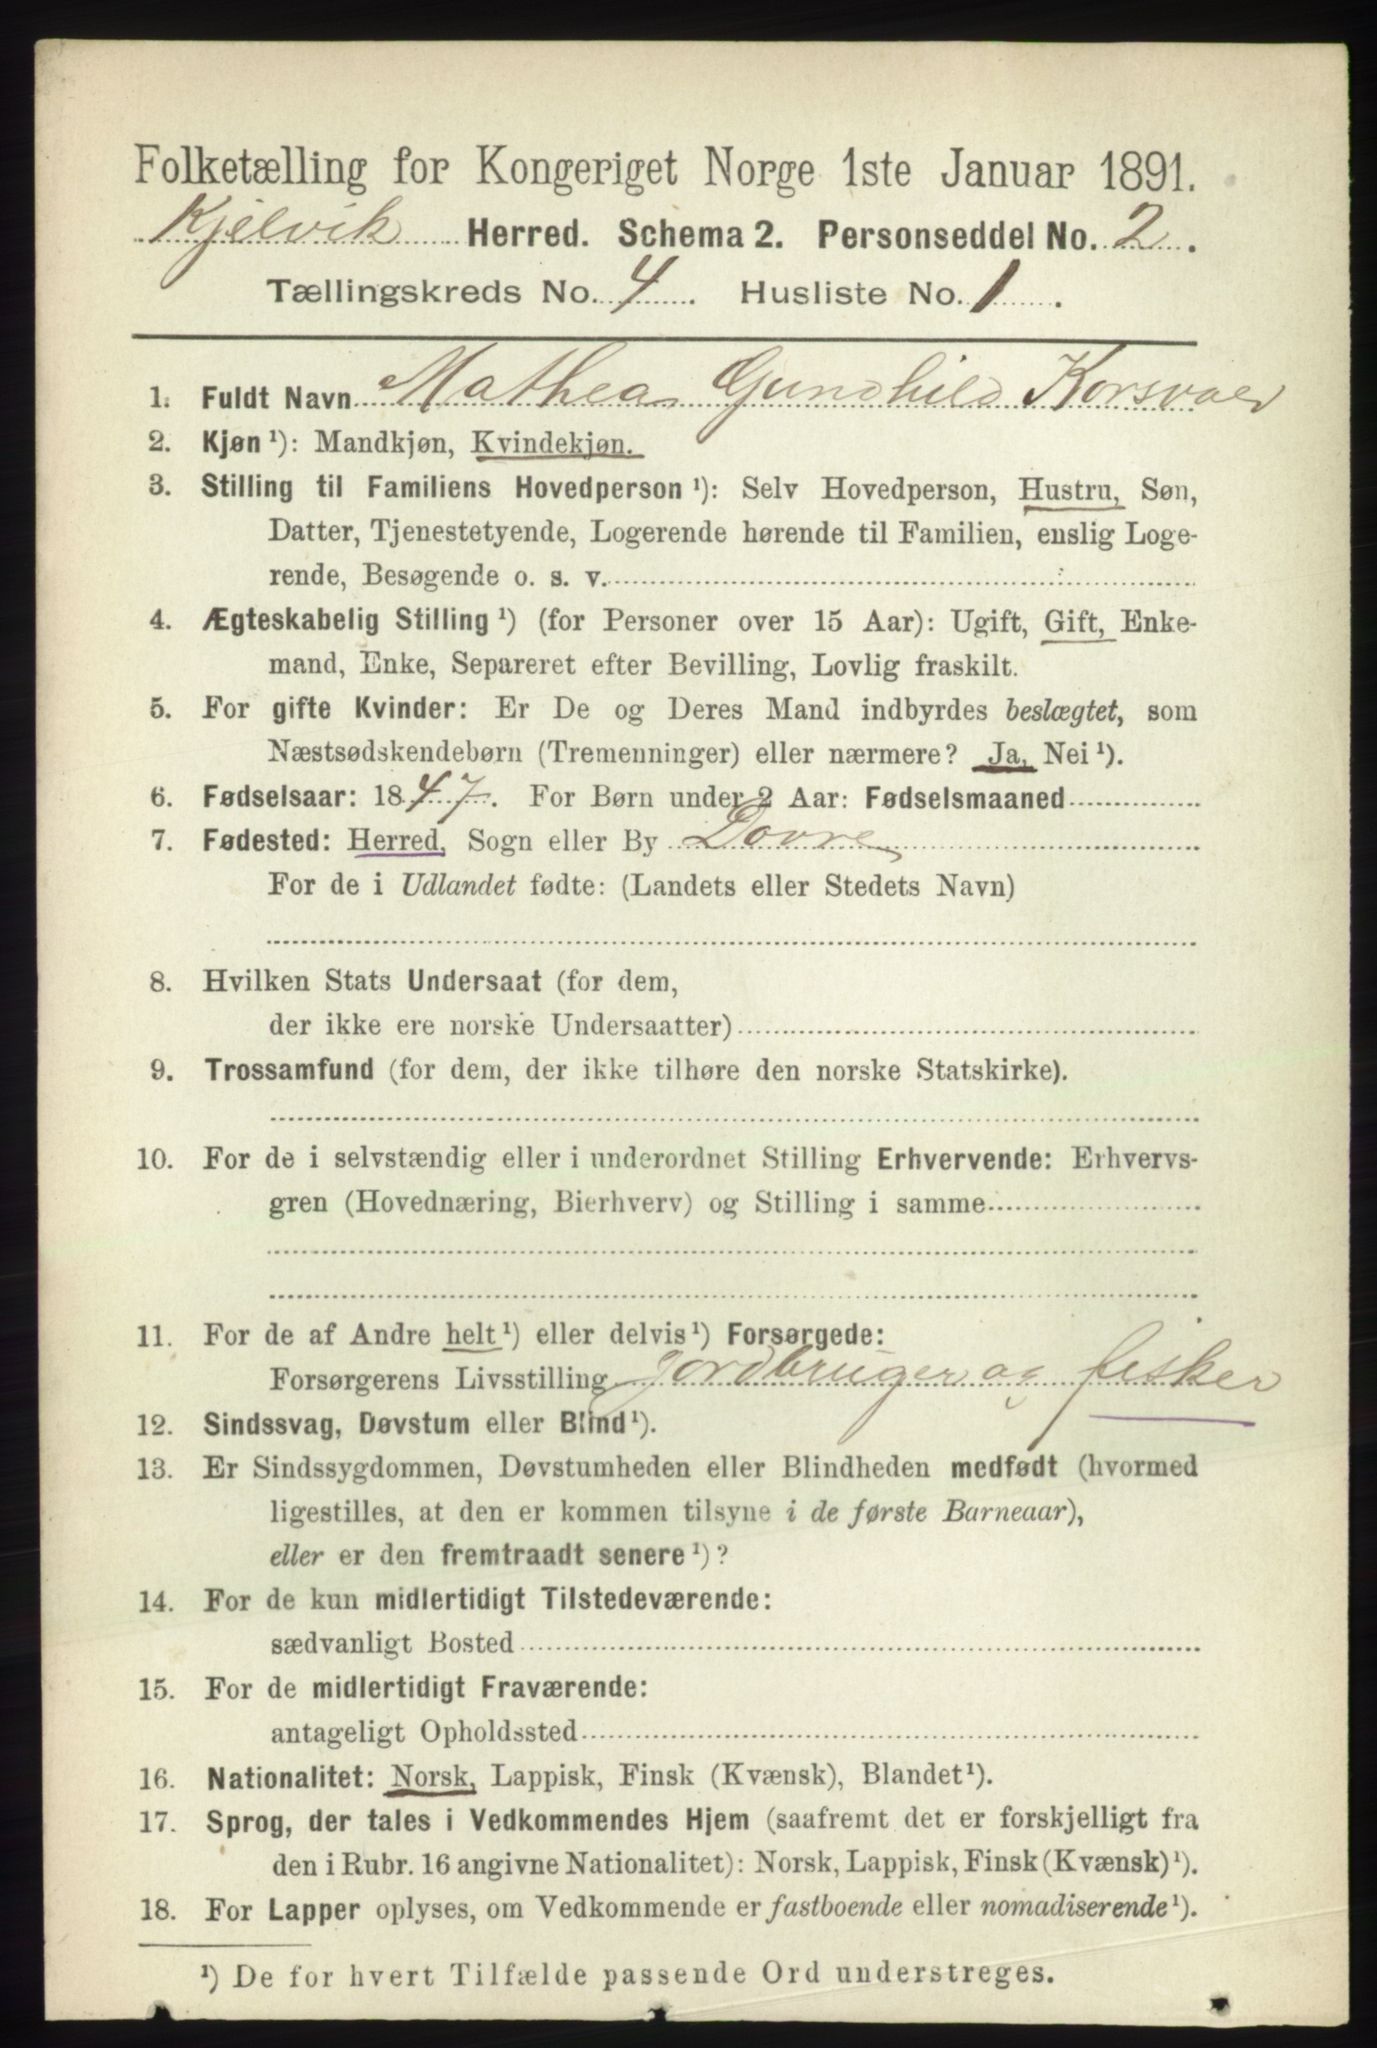 Folketælling for Kongeriget Norge 1ste Januar 1891.
Kjelvik Herred. Schema 2. Personseddel No. 2.
Tællingskreds No. 4. Husliste No. 1.
1. Fuldt Navn Mathea Gunhild Korsvær
2. Kjøn ¹): Mandkjøn, Kvindekjøn.
3. Stilling til Familiens Hovedperson ¹): Selv Hovedperson, Hustru, Søn,
Datter, Tjenestetyende, Logerende hørende til Familien, enslig Loge-
rende, Besøgende o. s. v.
4. Ægteskabelig Stilling ¹) (for Personer over 15 Aar): Ugift, Gift, Enke-
mand, Enke, Separeret efter Bevilling, Lovlig fraskilt.
5. For gifte Kvinder: Er De og Deres Mand indbyrdes beslægtet, som
Næstsødskendebørn (Tremenninger) eller nærmere? Ja, Nei ¹).
6. Fødselsaar: 1847. For Børn under 2 Aar: Fødselsmaaned
7. Fødested: Herred, Sogn eller By Dovre
For de i Udlandet fødte: (Landets eller Stedets Navn)
8. Hvilken Stats Undersaat (for dem,
der ikke ere norske Undersaatter)
9. Trossamfund (for dem, der ikke tilhøre den norske Statskirke).
10. For de i selvstændig eller i underordnet Stilling Erhvervende: Erhvervs-
gren (Hovednæring, Bierhverv) og Stilling i samme
11. For de af Andre helt ¹) eller delvis ¹) Forsørgede:
Forsørgerens Livsstilling jordbruger og fisker
12. Sindssvag, Døvstum eller Blind ¹).
13. Er Sindssygdommen, Døvstumheden eller Blindheden medfødt (hvormed
ligestilles, at den er kommen tilsyne i de første Barneaar),
eller er den fremtraadt senere ¹)?
14. For de kun midlertidigt Tilstedeværende:
sædvanligt Bosted
15. For de midlertidigt Fraværende:
antageligt Opholdssted
16. Nationalitet: Norsk, Lappisk, Finsk (Kvænsk), Blandet ¹).
17. Sprog, der tales i Vedkommendes Hjem (saafremt det er forskjelligt fra
den i Rubr. 16 angivne Nationalitet): Norsk, Lappisk, Finsk (Kvænsk) ¹).
18. For Lapper oplyses, om Vedkommende er fastboende eller nomadiserende ¹).
¹) De for hvert Tilfælde passende Ord understreges.